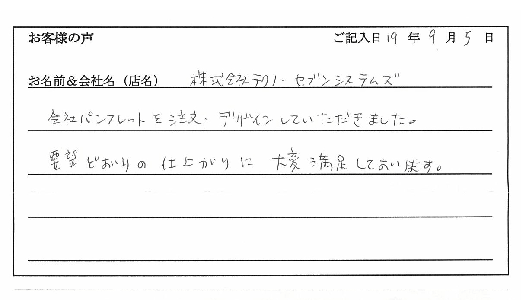 お客様の声 ご記入日 19 年 9 月 5 日
お名前＆会社名（店名） 株式会社テクノ・セブンシステムズ
会社パンフレットを注文・デザインしていただきました。
要望どおりの仕上がりに 大変満足しております。